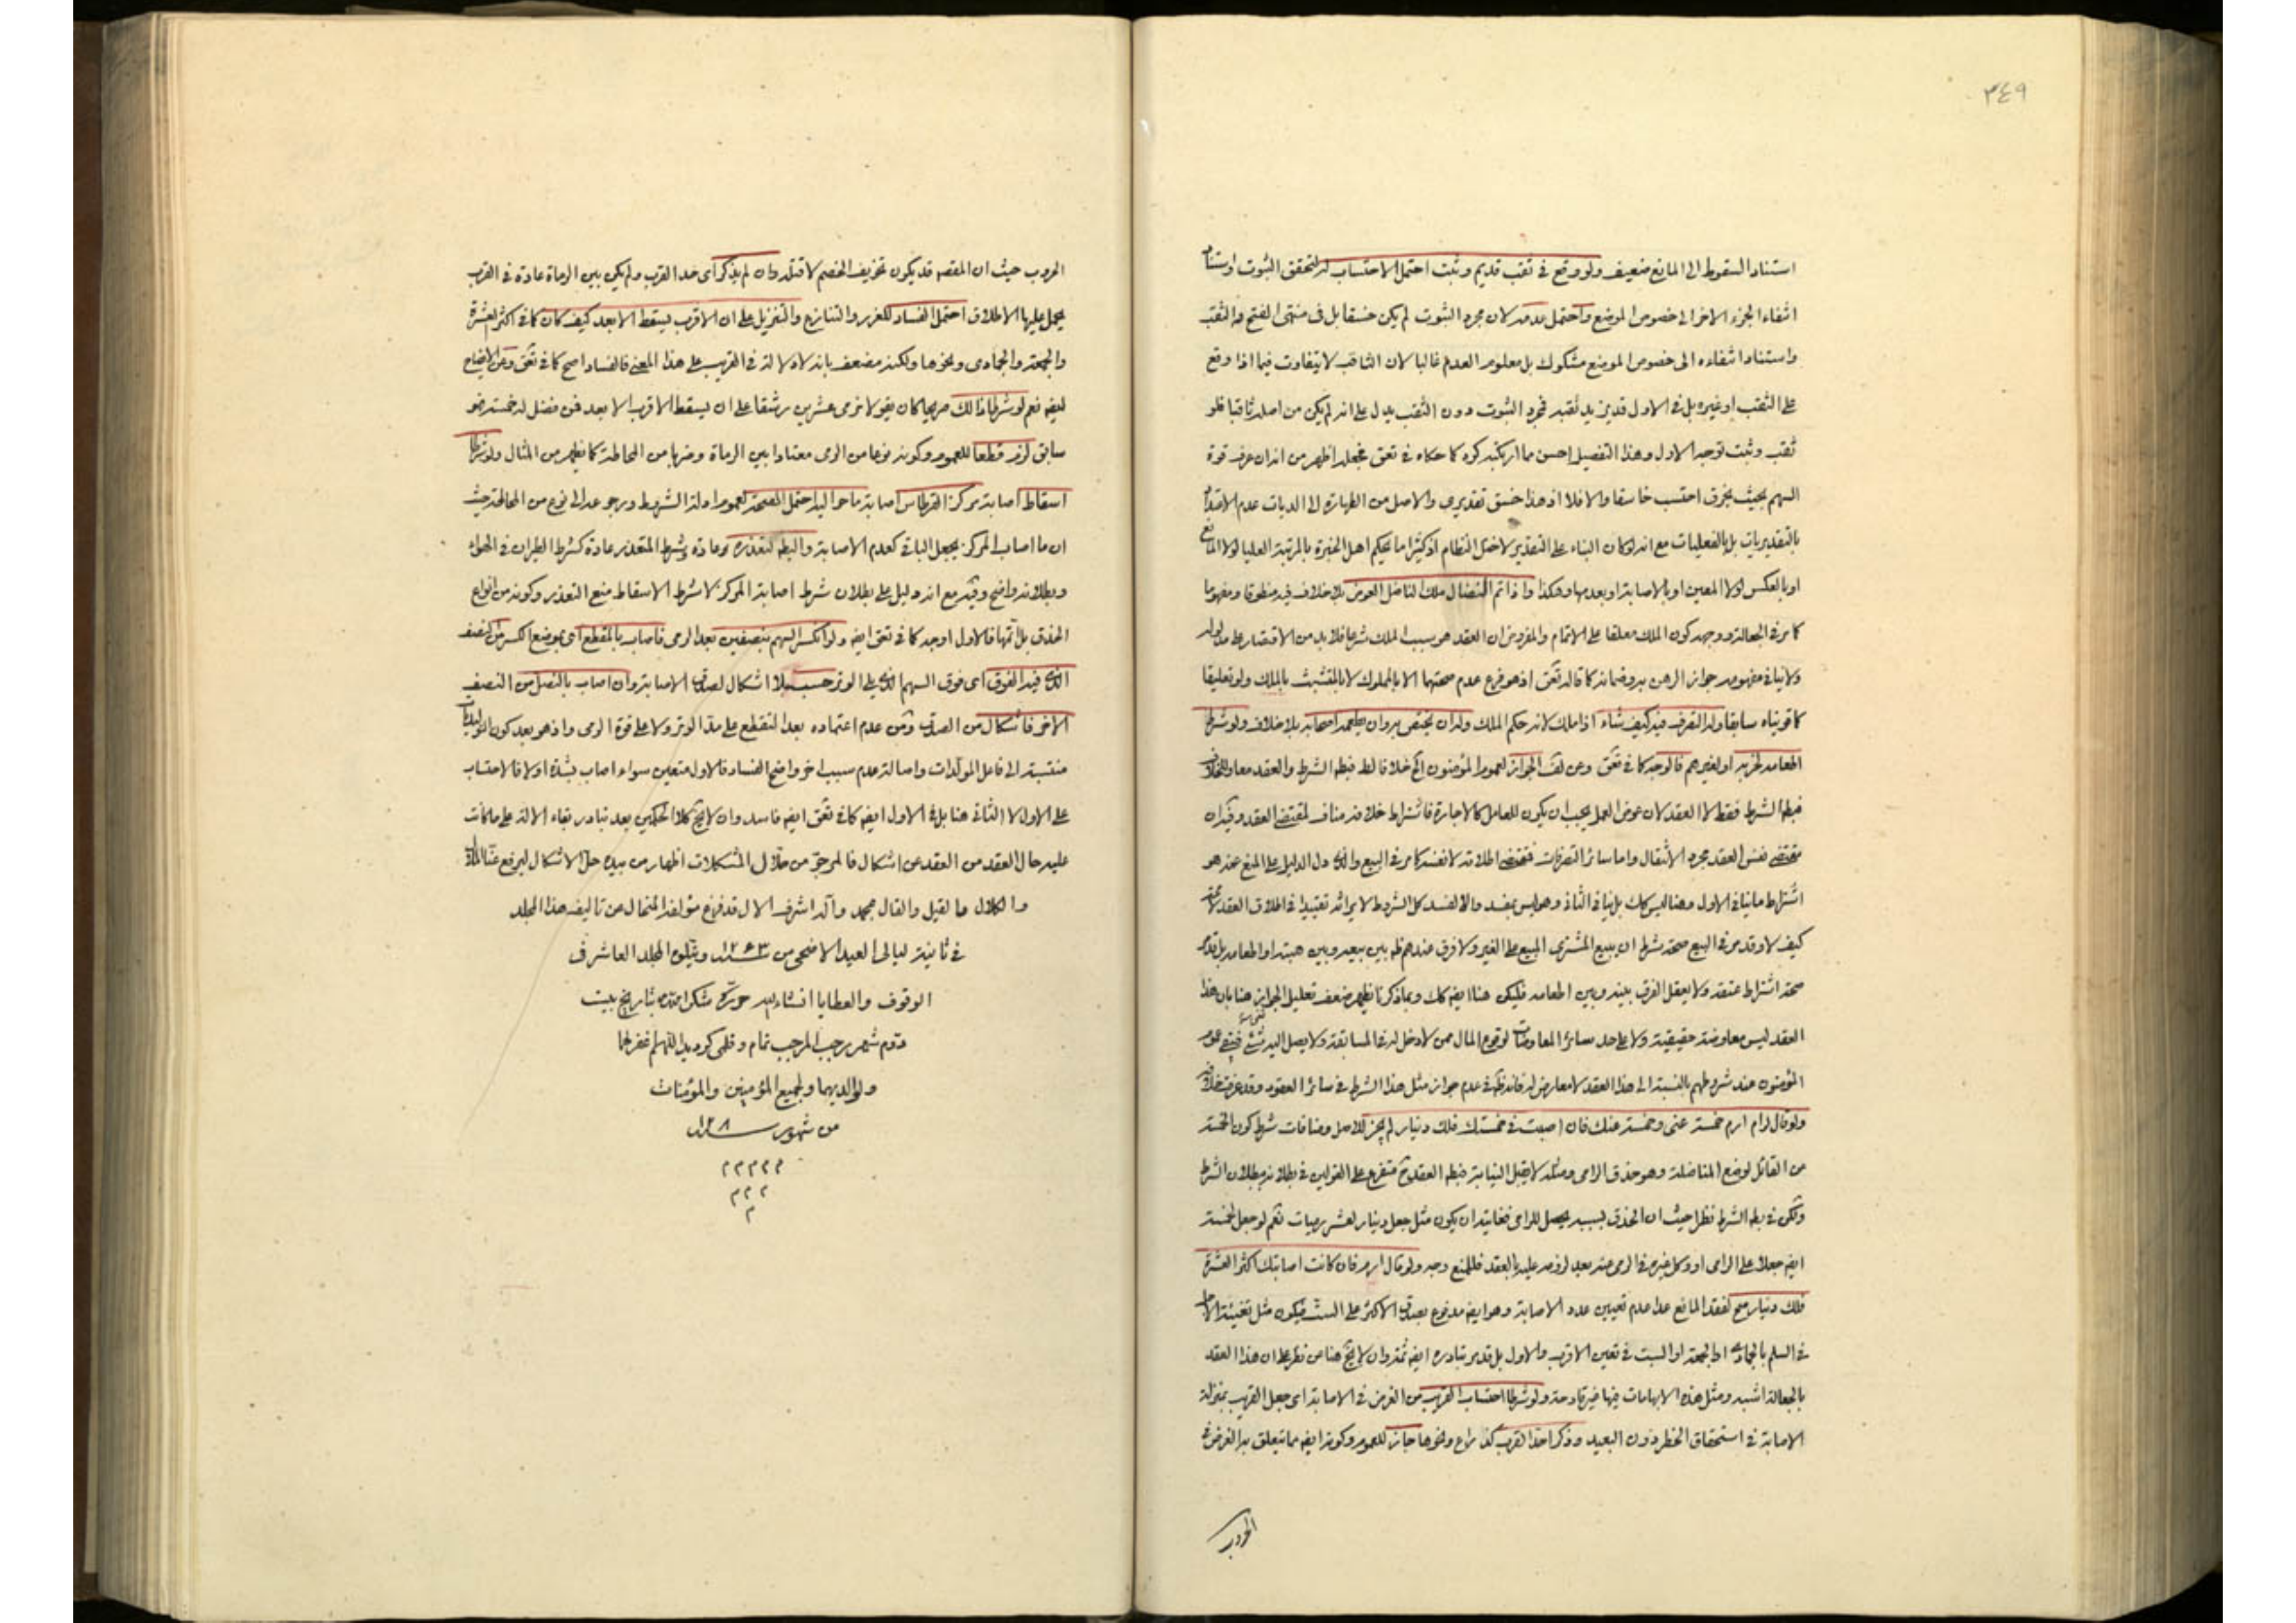 ٣٤٩
استناد السقوط الى المانع ضعيف ولو وقع فى ثقب قديم وثبت احتمل الاحتساب له لتحقق الثبوت واستناد
انتفاء الجزء الاخر الى خصوص الموضع واحتمل عدمه لان مجرد الثبوت لم يكن خسقا بل فى منتهى الفتح والثقب
واستناد انتفاءه الى خصوص الموضع مشكوك بل معلوم العدم غالبا لان الثاقب لا يتفاوت فيما اذا وقع
على الثقب او غيره بل فى الاول قد يزيد ثقبه فمجرد الثبوت دون الثقب يدل على انه لم يكن من اصله ثاقبا فلو
ثقب وثبت توجه الاول وهذا التفصيل احسن مما كما حكاه فى تعق بجعله اظهر من انه ان عرف قوة
السهم بحيث يخرق احتسب خاسقا والا فلا اذ هذا خسق تقديرى والاصل من الطهارة الى الديات عدم الاعتداد
بالتقديريات بل بالفعليات مع انه لو كان البناء على التقدير لاختل النظام اذ كثيرا ما يحكم اهل الخبرة بالمرتبة العليا لولا المانع
او بالعكس لولا المعين او بالاصابة او بعدمها وهكذا واذا تم النضال ملك الناضل العوض بلا خلاف فيه منطوقا ومفهوما
كما مر فى الجعالة ووجهه كون الملك معلقا على الاتمام والمفروض ان العقد هو سبب الملك شرعا فلا بد من الاقتصار على مدلوله
ولا ينافى مفهومه جواز الرهن به وضمانه كما قاله تعق اذ هو فرع عدم صحتهما الا بالمملوك لا بالمتشبث بالملك ولو تعليقا
كما قويناه سابقا وله التصرف فيه كيف شاء اذا ملك لانه حكم الملك وله ان يختص به وان يطعمه اصحابه بلا خلاف ولو شرط
اطعامه لحزبه او لغيرهم فالوجه كما فى تعق وعن لف الجواز لعموم المؤمنون الخ خلافا لط فيبطل الشرط والعقد معا وللخلاف
فيبطل الشرط فقط لا العقد لان عوض العمل يجب ان يكون للعامل كالاجارة فاشتراط خلافه مناف لمقتضى العقد وفيه ان
مقتضى نفس العقد مجرد الانتقال واما سائر التصرفات فمقتضى اطلاقه لا نفسه كما مر فى البيع والذى دل الدليل على المنع عنه هو
اشتراط ما ينافى الاول وهنا ليس كك بل ينافى الثانى وهو ليس بمفسد والا لفسد كل الشروط لايراثه تقييدا فى اطلاق العقد
كيف لا وقد مر فى البيع صحة شرط ان يبيع المشترى المبيع على الغير ولا فرق عندهم ظ بين بيعه وبين هبته او اطعامه بل قد مر
صحة اشتراط عتقه ولا يعقل الفرق بينه وبين اطعامه فليكن هنا ايضه كك وبما ذكرنا يظهر ضعف تعليل الجواز هنا بان هذا
العقد ليس معاوضة حقيقية ولا على حد سائر المعاوضات لوقوع المال ممن لا دخل له فى المسابقة ولا يصل اليه شئ فيبقى عموم
المؤمنون عند شروطهم بالنسبة الى هذا العقد لا معارض له فانه ظ فى عدم جواز مثل هذا الشرط فى سائر العقود وقد عرفت خلافه
ولو قال لرام ارم خمسة عنى وخمسة عنك فان اصبت فى خمستك فلك دينار لم يجز للاصل ومنافات شرط كون الخمسة
من القائل لوضع المناضلة وهو حذق الرامى ومثله لا يقبل النيابة فبطل العقد وح متفرع على القولين فى بطلانه ببطلان الشرط
ولكن فى بطلا الشرط نظر حيث ان الحذق بسببه يحصل للرامى فغايته ان يكون مثل جعل دينار لعشر رميات نعم لو جعل الخمسة
ايضه جعلا على الرامى او وكل غيره فى الرمى عنه بعد لزومه عليه بالعقد فللمنع وجه ولو قال ارم فان كانت اصابتك اكثر العشرة
فلك دينار صح لفقد المانع عدا عدم تعيين عدد الاصابة وهو ايضه مدفوع بصدق الاكثر على الست فيكون مثل تغيية الاجل
فى السلم بالجمادى او الجمعة او السبت فى تعين الاقرب والاول بل قد مر تبادره ايضه ثمة وان لا يخ هنا من نظر على ان هذا العقد
بالجعالة اشبه ومثل هذه الابهامات فيها غير قادحة ولو شرطا احتساب القريب من الغرض فى الاصابة اى جعل القريب بمنزلة
الاصابة فى استحقاق الخطر دون البعيد وذكرا حد القرب كذراع ونحوها جاز للعموم وكونه ايضه مما يتعلق به الغرض فى
الحروب
الحروب حيث ان المقصه قد يكون تخويف الخصم لا قتله وان لم يذكر اى حد القرب ولم يكن بين الرماة عادة فى القرب
يحمل عليها الاطلاق احتمل الفساد للغرر والتنازع والتنزيل على ان الاقرب يسقط الابعد كيف كان كما فى اكثر العشرة
والجمعة والجمادى ونحوها ولكنه مضعف بانه لا دلالة فى القريب على هذا المعنى فالفساد اصح كما فى تعق وعن الايضاح
ايضه نعم لو شرطا ذلك صريحا كان يقولا نرمى عشرين رشقا على ان يسقط الاقرب الابعد فمن فضل له خمسة فهو
سابق لزم قطعا للعموم وكونه نوعا من الرمى معتادا بين الرماة وضربا من المحاطة كما يظهر من المثال ولو شرطا
اسقاط اصابة مركز القرطاس اصابة ما حواليه احتمل الصحة لعموم ادلة الشروط ورجوعه الى نوع من المحاطة حيث
ان ما اصاب المركز يجعل الباقى كعدم الاصابة والبطلا لتعذره عادة وشرط المتعذر عادة كشرط الطيران فى الهواء
وبطلانه واضح وفيه مع انه دليل على بطلان شرط اصابة المركز لا شرط الاسقاط منع التعذر وكونه من انواع
الحذق بل اتمها فالاول اوجه كما فى تعق ايضه ولو انكسر السهم بنصفين بعد الرمى فاصاب بالمقطع اى موضع الكسر من النصف
الذى فيه الفوق اى فوق السهم الذى على الوتر حسب بلا اشكال لصدق الاصابة وان اصاب بالنصل من النصف
الاخر فاشكال من الصدق ومن عدم اعتماده بعد التقطع على مد الوتر ولا على قوة الرمى واذ هو بعد كون التوليدات
منتسبة الى فاعل المولدات واصالة عدم سبب اخر واضح الفساد فالاول متعين سواء اصاب بشدة او لا فالاحتساب
على الاول لا الثانى هنا بل فى الاول ايضه كما فى تعق ايضه فاسد وان لا يخ كلا الحكمين بعد تبادر بقاء الالة على ما كانت
عليه حال العقد من العقد عن اشكال فالمرجو من حلال المشكلات اظهار من بيده حل الاشكال ليرفع عنا الملال
والكلال والقيل والقال بمحمد وآله اشرف الال قد فرغ مؤلفه المنحال من تاليف هذا المجلد
فى ثانية ليالى العيد الاضحى من ١٢٤٣ ويتلوه المجلد العاشر فى
الوقوف والعطايا انشاء الله حرره شكر الله بتاريخ بيست
ودوم شهر رجب المرجب تمام وقلمى كرديد اللهم اغفر لهما
ولوالديهما ولجميع المؤمنين والمؤمنات
من شهور ١٢٨
م م م م م
م م م
م